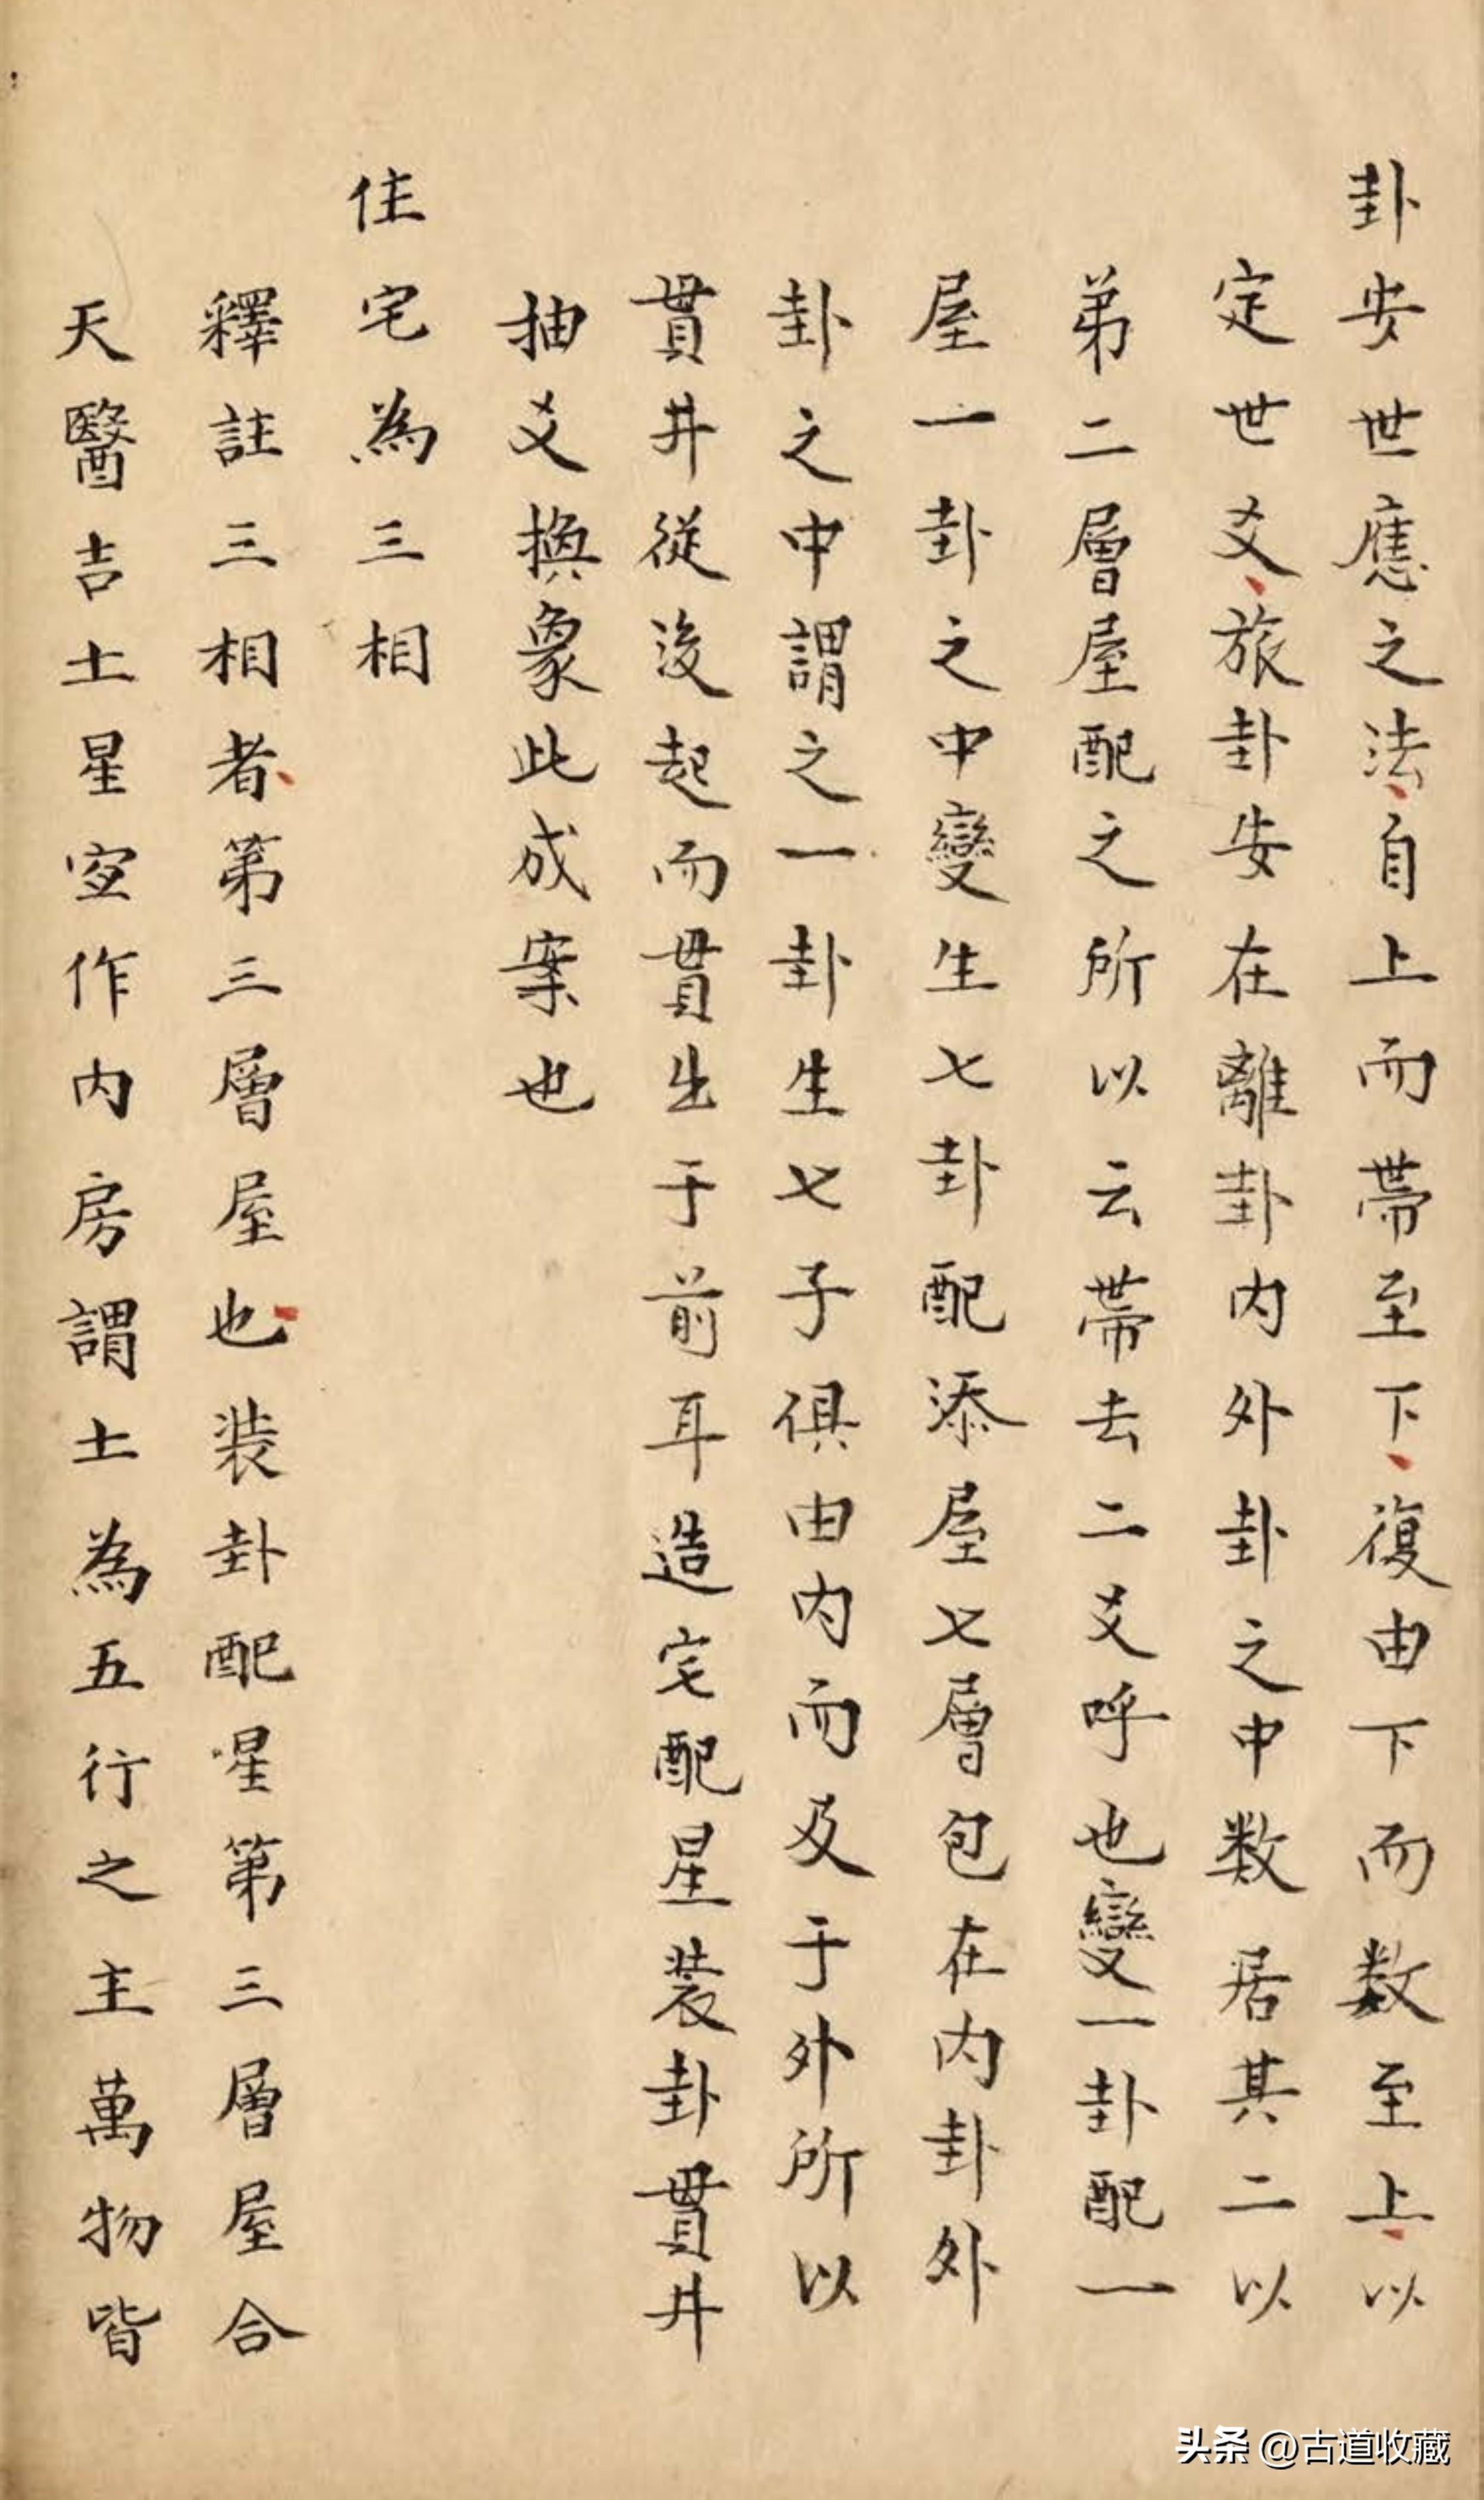 卦安世應之法自上而帶至下復由下而数至上以
定世爻旅卦安在離卦内外卦之中数居其二以
弟二層屋配之所以云帶去二爻呼也變一卦配一
屋一卦之中變生七卦配添屋七層包在内卦外
卦之中謂之一卦生七子俱由内而及于外所以
貫井從後起而貫出于前耳造宅配星裝卦貫井
抽爻換象此成案也
住宅為三相
釋註三相者第三層屋也装卦配星第三層屋合
天醫吉土星宜作内房謂土為五行之主萬物皆
头条 @古道收藏